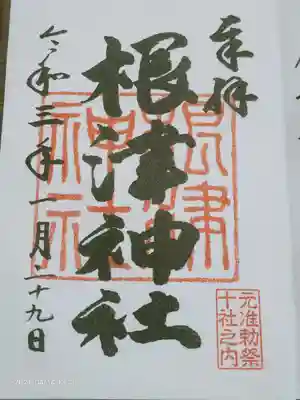 奉拝
根津神社
根津
神社
元准勅祭
十社之内
令和三年一月二十九日